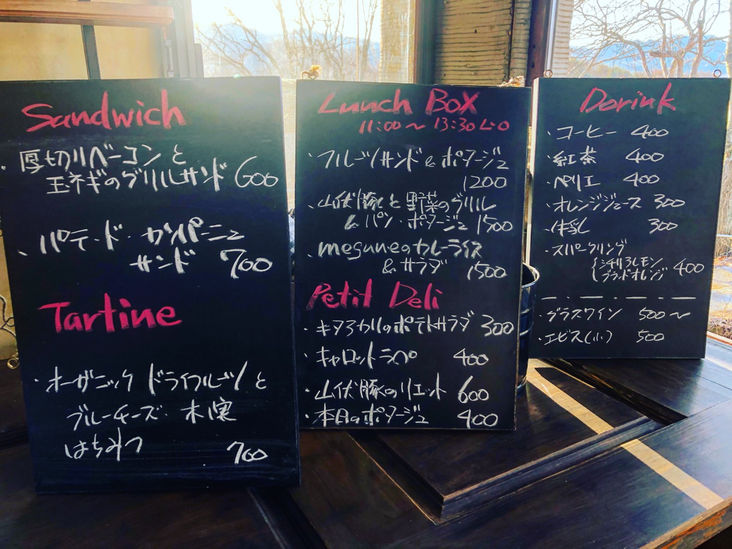 Sandwich
・厚切りベーコンと
玉ネギのグリルサンド 600
・パテ・ド・カンパーニュ
サンド 700
Tartine
・オーガニックドライフルーツと
ブルーチーズ・木の実
はちみつ 700
Lunch Box
11:00〜13:30 L・O
・フルーツサンド&ポタージュ
1200
・山伏豚と野菜のグリル
&パン・ポタージュ 1500
・meguneoカレーライス
&サラダ 1500
Petit Deli
・キタアカリのポテトサラダ 300
・キャロットラペ 400
・山伏豚のリエット 600
・本日のポタージュ 400
Dorink
・コーヒー 400
・紅茶 400
・ペリエ 400
・オレンジジュース 300
・牛乳 300
・スパークリング
シチリアレモン
ブラッドオレンジ 400
・グラスワイン 500〜
・エビス(小) 500